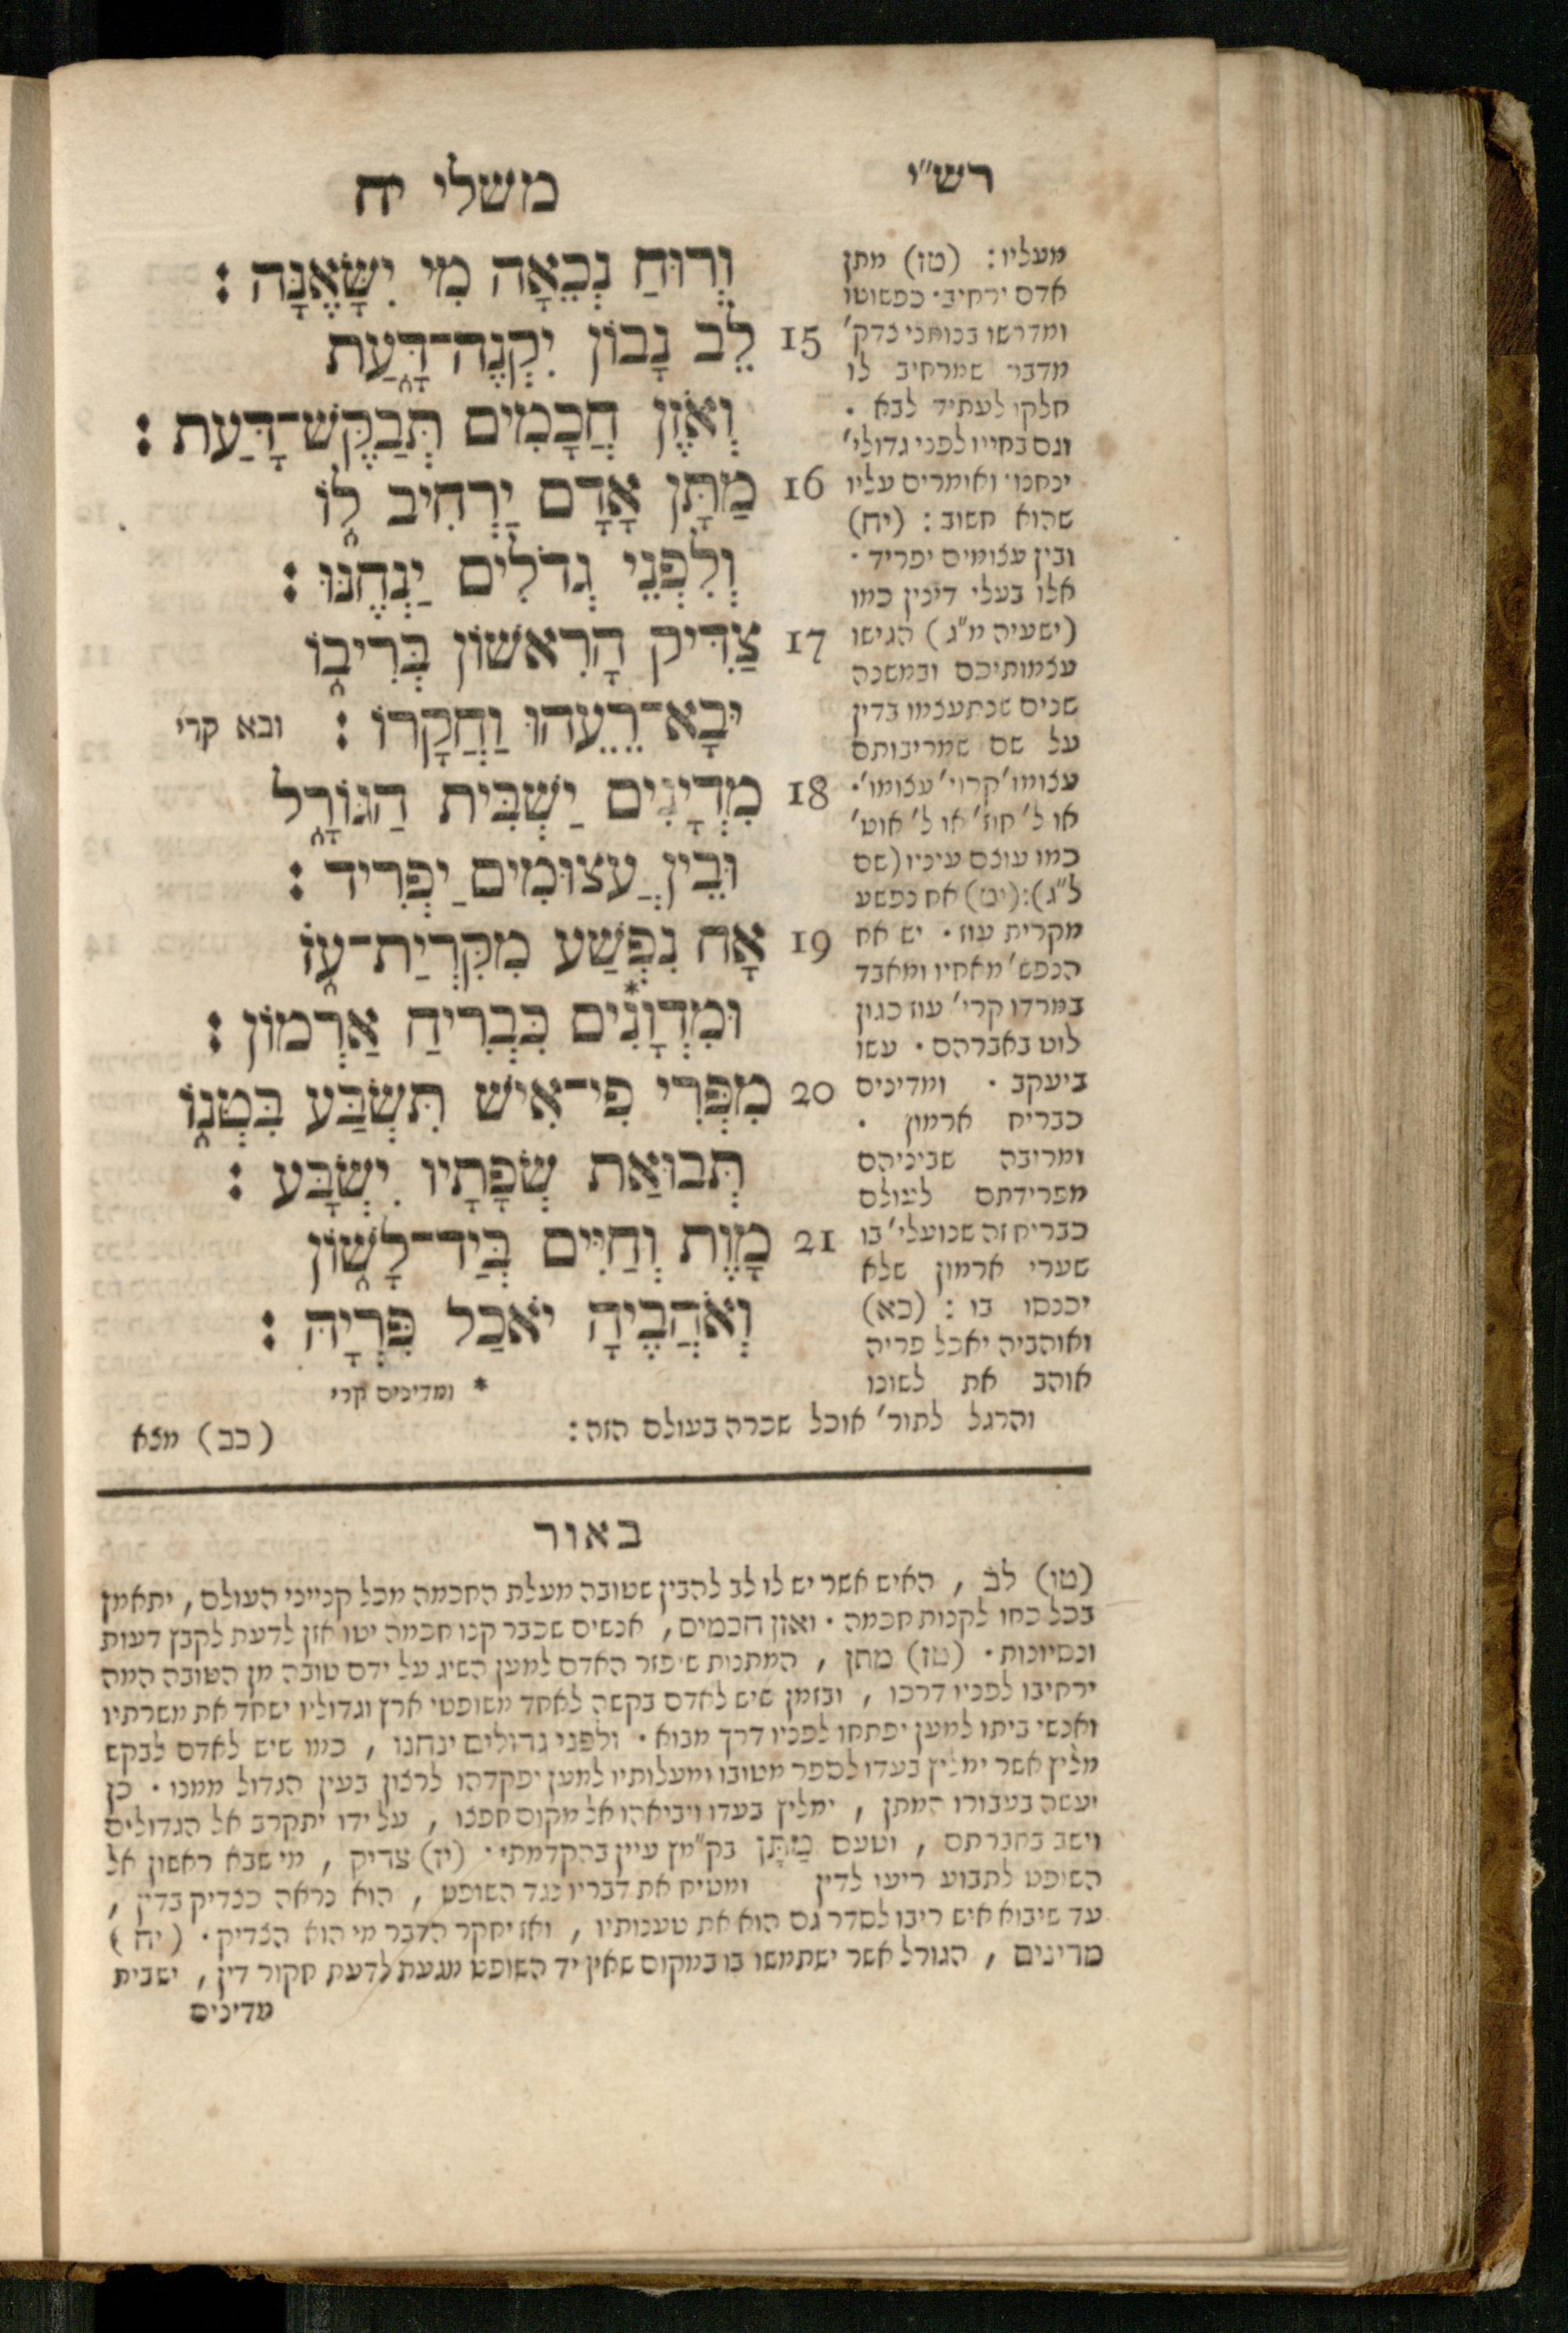 רש״י
משלי יח
וְרוּחַ נְכֵאָה מִי יִשָּׂאֶנָּה :
15 לֵב נָבוֹן יִקְנֶה־דָּעַת
וְאֹזֶן חֲכָמִים תְּבַקֶּשׁ־דָּעַת :
16 מַתָּן אָדָם יַרְחִיב לוֹ
וְלִפְנֵי גְדֹלִים יַנְחֶנּוּ :
17 צַדִּיק הָרִאשׁוֹן בְּרִיבוֹ
יּבָא־רֵעֵהוּ וַחֲקָרוֹ : ובא קרי
18 מִדְיָנִים יַשְׁבִּית הַגּוֹרָל
וּבֵין עֲצוּמִים יַפְרִיד :
19 אָח נִפְשָׁע מִקִּרְיַת־עֹז
וּמִדְוָנִים* כִּבְרִיחַ אַרְמוֹן :
20 מִפְּרִי פִי־אִישׁ תִּשְׂבַּע בִּטְנוֹ
תְּבוּאַת שְׂפָתָיו יִשְׂבָּע :
21 מָוֶת וְחַיִּים בְּיַד־לָשׁוֹן
וְאֹהֲבֶיהָ יֹאכַל פִּרְיָהּ :
* ומדינים קרי
מעליו : (טז) מתן
אדם ירחיב · כפשוטו
ומדרשו בנותני צדק׳
מדבר שמרחיב לו
חלקו לעתיד לבא ·
וגם בחייו לפני גדולי׳
ינחנו · ואומרים עליו
שהוא חשוב : (יח)
ובין עצומים יפריד ·
אלו בעלי דינין כמו
(ישעיה מ״ג) הגישו
עצמותיכם ובמשנה
שנים שנתעצמו בדין
על שם שמריבותם
עצומו׳ קרוי׳ עצומו׳ ·
או ל׳ חוז׳ או ל׳ אוט׳
כמו עוצם עיניו (שם
ל״ג) : (יט) אח נפשע
מקרית עוז · יש אח
הנפש׳ מאחיו ומאבד
במרדו קרי׳ עוז כגון
לוט באברהם · עשו
ביעקב · ומדינים
כבריח ארמון ·
ומריבה שביניהם
מפרידתם לעולם
כבריח זה שנועלי׳ בו
שערי ארמון שלא
יכנסו בו : (כא)
ואוהביה יאכל פריה
אוהב את לשונו
והרגל לתור׳ אוכל שכרה בעולם הזה :
(כב) מצא
באור
(טו) לב , האיש אשר יש לו לב להבין שטובה מעלת החכמה מכל קנייני העולם , יתאמן
בכל כחו לקנות חכמה · ואזן חכמים , אנשים שכבר קנו חכמה יטו אזן לדעת לקבץ דעות
ונסיונות · (טז) מתן , המתנות שיפזר האדם למען השיג על ידם טובה מן הטובה המה
ירחיבו לפניו דרכו , ובזמן שיש לאדם בקשה לאחד משופטי ארץ וגדוליו ישחד את משרתיו
ואנשי ביתו למען יפתחו לפניו דרך מבוא · ולפני גדולים ינחנו , כמו שיש לאדם לבקש
מליץ אשר ימליץ בעדו לספר מטובו ומעלותיו למען יפקדהו לרצון בעין הגדול ממנו · כן
יעשה בעבורו המתן , ימליץ בעדו ויביאהו אל מקום חפצו , על ידו יתקרב אל הגדולים
וישב בחברתם , וטעם מַתָּן בק״מץ עיין בהקדמתי · (יז) צדיק , מי שבא ראשון אל
השופט לתבוע ריעו לדין ומטיח את דבריו נגד השופט , הוא נראה כצדיק בדין ,
עד שיבוא איש ריבו לסדר גם הוא את טענותיו , ואז יחקר הדבר מי הוא הצדיק · (יח)
מדינים , הגורל אשר ישתמשו בו במקום שאין יד השופט מגעת לדעת חקור דין , ישבית
מדינים